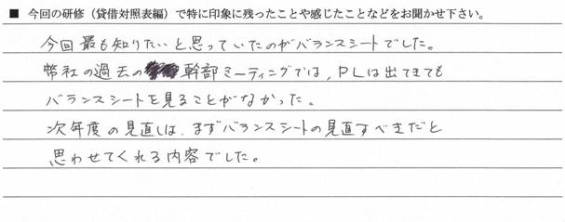 ■ 今回の研修（貸借対照表編）で特に印象に残ったことや感じたことなどをお聞かせ下さい。
今回最も知りたいと思っていたのがバランスシートでした。
弊社の過去の幹部ミーティングでは、PLは出てきても
バランスシートを見ることがなかった。
次年度の見直しは、まずバランスシートの見直すべきだと
思わせてくれる内容でした。